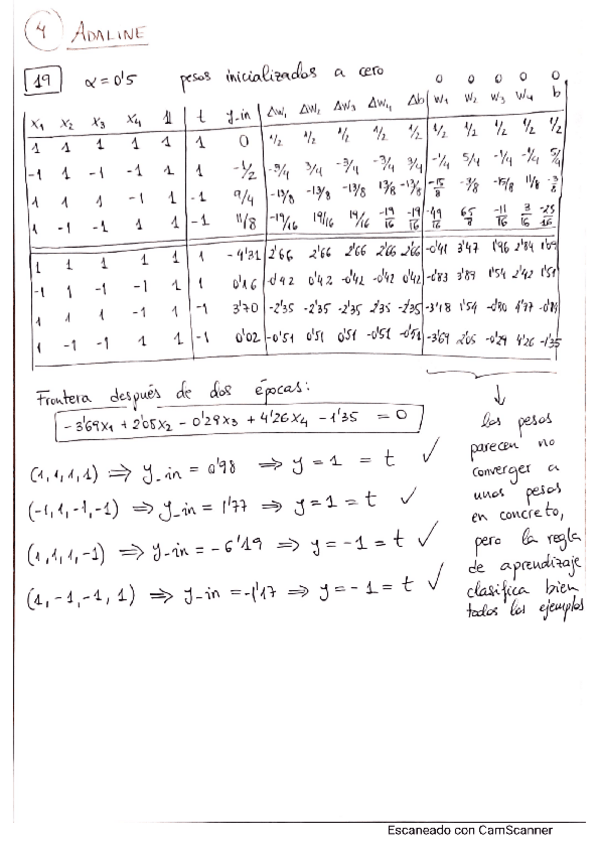 4 ADALINE
19 α = 0'5 pesos inicializados a cero
0 0 0 0 0
x1 x2 x3 x4 1 t y_in Δw1 Δw2 Δw3 Δw4 Δb w1 w2 w3 w4 b
1 1 1 1 1 1 0 1/2 1/2 1/2 1/2 1/2 1/2 1/2 1/2 1/2 1/2
-1 1 -1 -1 1 1 -1/2 -3/4 3/4 -3/4 -3/4 3/4 -1/4 5/4 -1/4 -1/4 5/4
1 1 1 -1 1 -1 9/4 -13/8 -13/8 -13/8 13/8 -13/8 -15/8 -3/8 -15/8 11/8 -3/8
1 -1 -1 1 1 -1 11/8 -19/16 19/16 19/16 -19/16 -19/16 -49/16 -11/16 3/16 -25/16
1 1 1 1 1 1 -4'31 2'66 2'66 2'66 2'66 2'66 -0'41 3'47 1'96 2'84 1'09
-1 1 -1 -1 1 1 0'16 -0'42 0'42 -0'42 -0'42 0'42 -0'83 3'89 1'54 2'42 1'51
1 1 1 -1 1 -1 3'70 -2'35 -2'35 -2'35 2'35 -2'35 -3'18 1'54 -0'80 4'77 -0'84
1 -1 -1 1 1 -1 0'02 -0'51 0'51 0'51 -0'51 -0'51 -3'69 2'05 -0'29 4'26 -1'35
Frontera después de dos épocas:
-3'69x1 + 2'05x2 - 0'29x3 + 4'26x4 - 1'35 = 0
(1,1,1,1) ⟹ y_in = 0'98 ⟹ y = 1 = t ✓
(-1,1,-1,-1) ⟹ y_in = 1'77 ⟹ y = 1 = t ✓
(1,1,1,-1) ⟹ y_in = -6'19 ⟹ y = -1 = t ✓
(1,-1,-1,1) ⟹ y_in = -1'17 ⟹ y = -1 = t ✓
↓
los pesos
parecen no
converger a
unos pesos
en concreto,
pero la regla
de aprendizaje
clasifica bien
todos los ejemplos
Escaneado con CamScanner